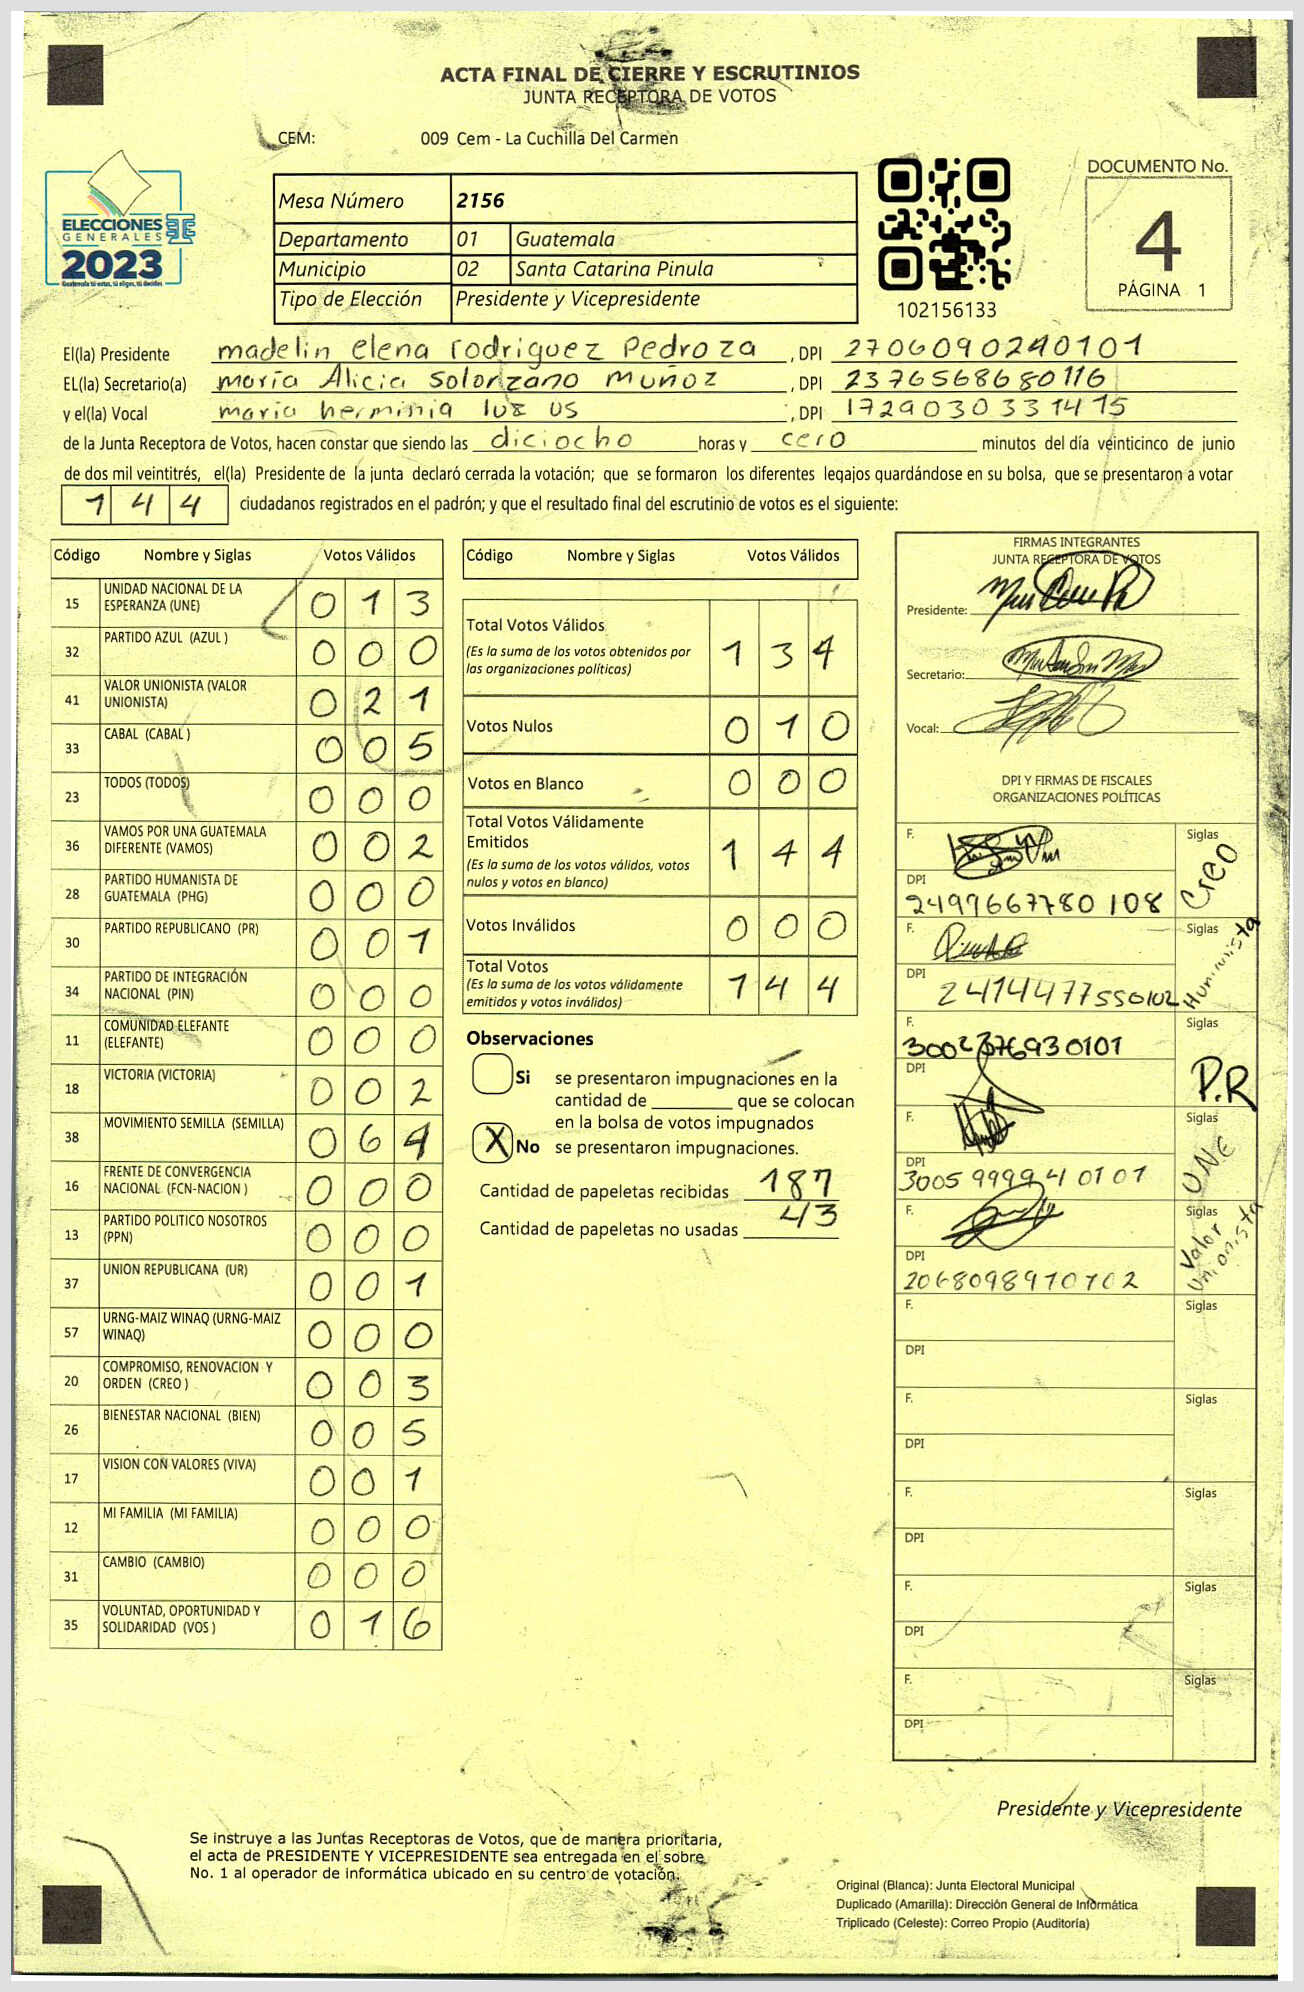 ACTA FINAL DE CIERRE Y ESCRUTINIOS
JUNTA RECEPTORA DE VOTOS
CEM: 009 Cem - La Cuchilla Del Carmen
ELECCIONES
GENERALES
2023
Guatemala tú estas, tú eliges, tú decides
Mesa Número 2156
Departamento 01 Guatemala
Municipio 02 Santa Catarina Pinula
Tipo de Elección Presidente y Vicepresidente
102156133
DOCUMENTO No.
4
PÁGINA 1
El(la) Presidente madelin elena rodriguez Pedroza , DPI 2706090240101
EL(la) Secretario(a) maría Alicia Solorzano muñoz , DPI 2376568680116
y el(la) Vocal maria herminia luz us , DPI 1729030331415
de la Junta Receptora de Votos, hacen constar que siendo las diciocho horas y cero minutos del día veinticinco de junio
de dos mil veintitrés, el(la) Presidente de la junta declaró cerrada la votación; que se formaron los diferentes legajos guardándose en su bolsa, que se presentaron a votar
144 ciudadanos registrados en el padrón; y que el resultado final del escrutinio de votos es el siguiente:
Código Nombre y Siglas Votos Válidos
15 UNIDAD NACIONAL DE LA
ESPERANZA (UNE) 0 1 3
32 PARTIDO AZUL (AZUL ) 0 0 0
41 VALOR UNIONISTA (VALOR
UNIONISTA) 0 2 1
33 CABAL (CABAL ) 0 0 5
23 TODOS (TODOS) 0 0 0
36 VAMOS POR UNA GUATEMALA
DIFERENTE (VAMOS) 0 0 2
28 PARTIDO HUMANISTA DE
GUATEMALA (PHG) 0 0 0
30 PARTIDO REPUBLICANO (PR) 0 0 1
34 PARTIDO DE INTEGRACIÓN
NACIONAL (PIN) 0 0 0
11 COMUNIDAD ELEFANTE
(ELEFANTE) 0 0 0
18 VICTORIA (VICTORIA) 0 0 2
38 MOVIMIENTO SEMILLA (SEMILLA) 0 6 4
16 FRENTE DE CONVERGENCIA
NACIONAL (FCN-NACION ) 0 0 0
13 PARTIDO POLITICO NOSOTROS
(PPN) 0 0 0
37 UNION REPUBLICANA (UR) 0 0 1
57 URNG-MAIZ WINAQ (URNG-MAIZ
WINAQ) 0 0 0
20 COMPROMISO, RENOVACION Y
ORDEN (CREO ) 0 0 3
26 BIENESTAR NACIONAL (BIEN) 0 0 5
17 VISION CON VALORES (VIVA) 0 0 1
12 MI FAMILIA (MI FAMILIA) 0 0 0
31 CAMBIO (CAMBIO) 0 0 0
35 VOLUNTAD, OPORTUNIDAD Y
SOLIDARIDAD (VOS ) 0 1 6
Código Nombre y Siglas Votos Válidos
Total Votos Válidos
(Es la suma de los votos obtenidos por
las organizaciones políticas) 1 3 4
Votos Nulos 0 1 0
Votos en Blanco 0 0 0
Total Votos Válidamente
Emitidos
(Es la suma de los votos válidos, votos
nulos y votos en blanco) 1 4 4
Votos Inválidos 0 0 0
Total Votos
(Es la suma de los votos válidamente
emitidos y votos inválidos) 1 4 4
Observaciones
Si se presentaron impugnaciones en la
cantidad de ________ que se colocan
en la bolsa de votos impugnados
X No se presentaron impugnaciones.
Cantidad de papeletas recibidas 187
Cantidad de papeletas no usadas 43
FIRMAS INTEGRANTES
JUNTA RECEPTORA DE VOTOS
Presidente:
Secretario:
Vocal:
DPI Y FIRMAS DE FISCALES
ORGANIZACIONES POLÍTICAS
F. Siglas Creo
DPI 2499667780108
F. Siglas Humanista
DPI 2414477550102
F. 3002376930101 Siglas P.R
DPI
F. Siglas UNE
DPI 3005999940101
F. Siglas Valor Unionista
DPI 2068098970702
F. Siglas
DPI
F. Siglas
DPI
F. Siglas
DPI
F. Siglas
DPI
F. Siglas
DPI
Presidente y Vicepresidente
Se instruye a las Juntas Receptoras de Votos, que de manera prioritaria,
el acta de PRESIDENTE Y VICEPRESIDENTE sea entregada en el sobre
No. 1 al operador de informática ubicado en su centro de votación.
Original (Blanca): Junta Electoral Municipal
Duplicado (Amarilla): Dirección General de Informática
Triplicado (Celeste): Correo Propio (Auditoría)